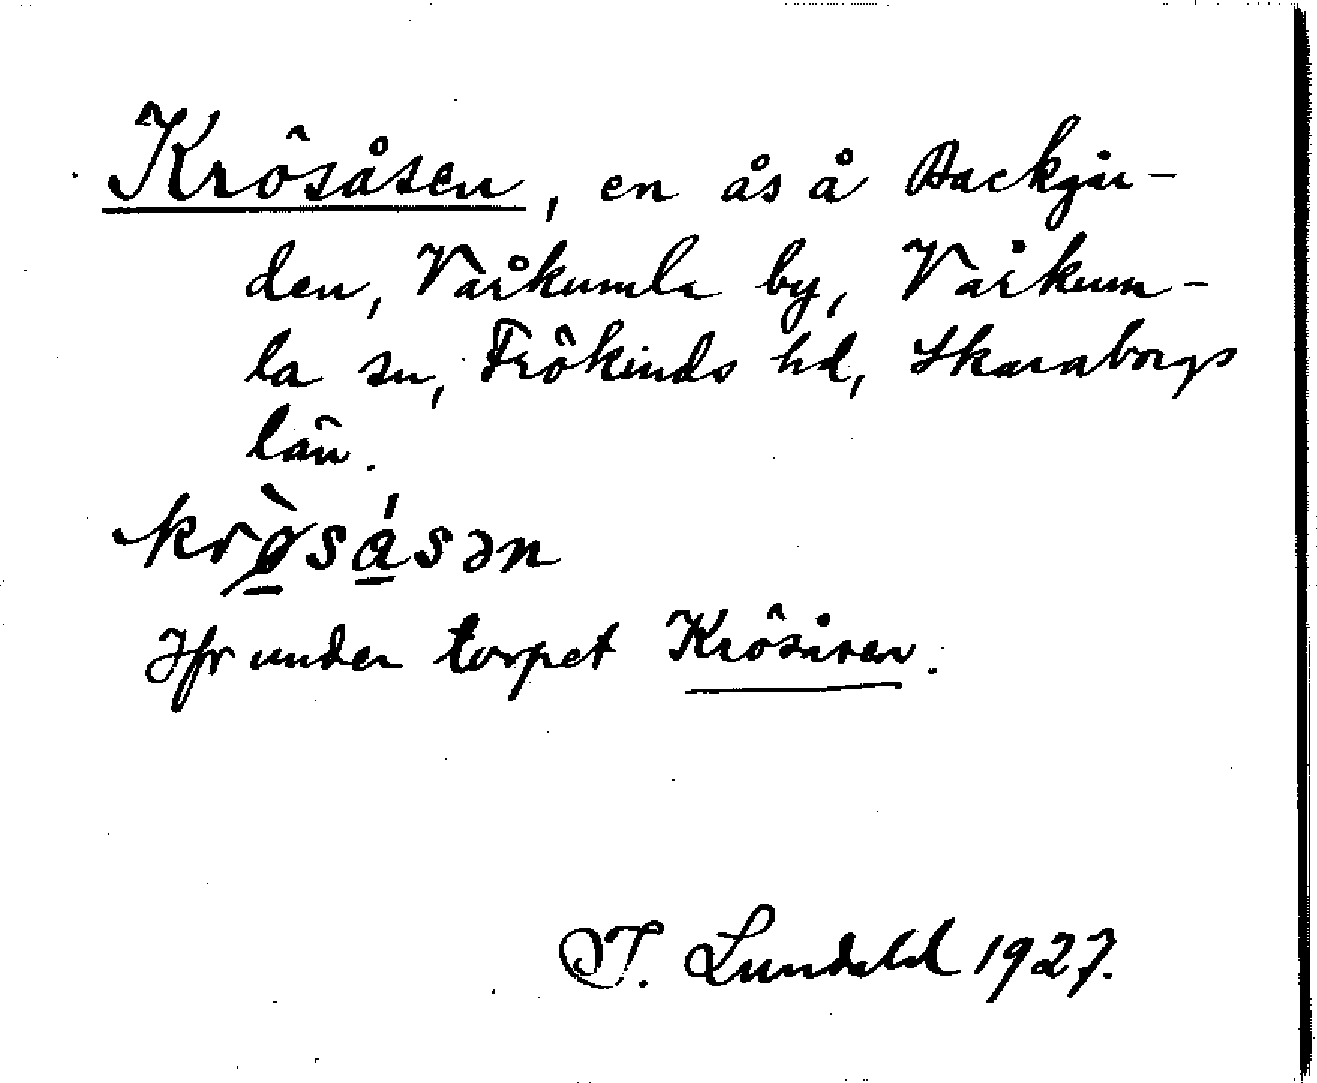 Krösåsen, en ås å Backgår-
den, Vårkumla by, Vårkum-
la sn, Frökinds hd, Skaraborgs
län.
krø̠̀sá̠sən
Jfr under torpet Krösåsen.
T. Lundahl 1927.